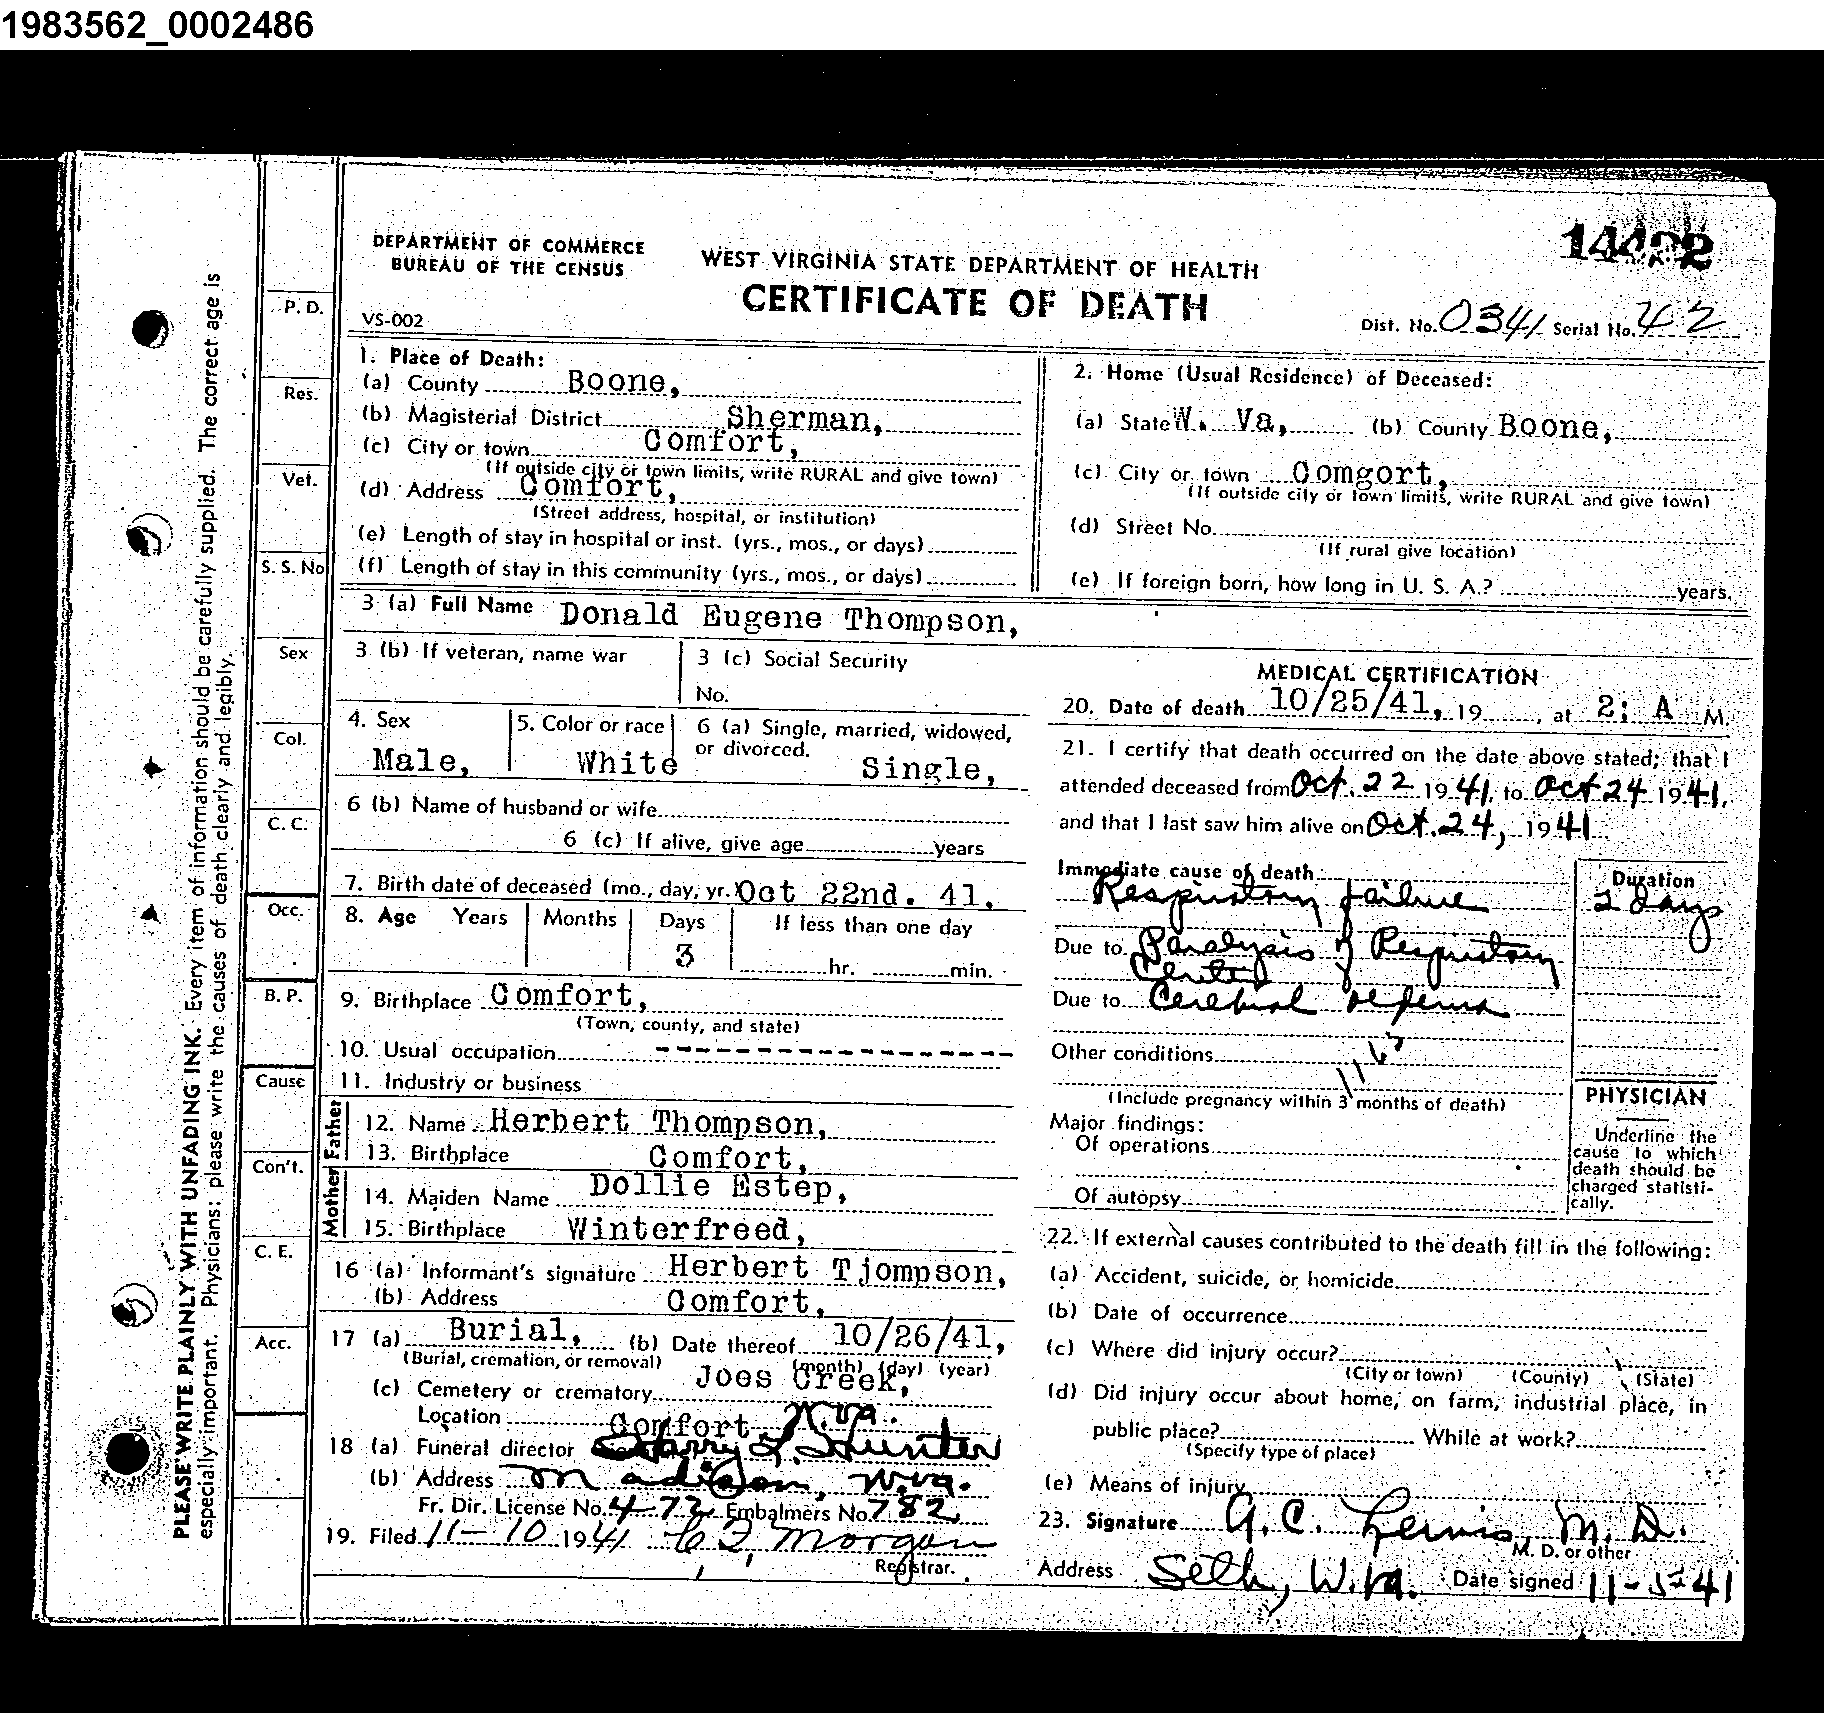 1983562_0002486
DEPARTMENT OF COMMERCE
BUREAU OF THE CENSUS
WEST VIRGINIA STATE DEPARTMENT OF HEALTH
CERTIFICATE OF DEATH
VS-002
Dist. No. 0341 Serial No. 42
1. Place of Death:
(a) County Boone,
(b) Magisterial District Sherman,
(c) City or town Comfort,
(If outside city or town limits, write RURAL and give town)
(d) Address Comfort,
(Street address, hospital, or institution)
(e) Length of stay in hospital or inst. (yrs., mos., or days)
(f) Length of stay in this community (yrs., mos., or days)
2. Home (Usual Residence) of Deceased:
(a) State W. Va, (b) County Boone,
(c) City or town Comgort,
(If outside city or town limits, write RURAL and give town)
(d) Street No.
(If rural give location)
(e) If foreign born, how long in U. S. A.? years.
3 (a) Full Name Donald Eugene Thompson,
3 (b) If veteran, name war
3 (c) Social Security
No.
4. Sex
Male,
5. Color or race
White
6 (a) Single, married, widowed,
or divorced.
Single,
6 (b) Name of husband or wife
6 (c) If alive, give age years
7. Birth date of deceased (mo., day, yr.) Oct 22nd. 41,
8. Age Years Months Days If less than one day
3
hr. min.
9. Birthplace Comfort,
(Town, county, and state)
10. Usual occupation ------------------
11. Industry or business
Father
12. Name Herbert Thompson,
13. Birthplace Comfort,
Mother
14. Maiden Name Dollie Estep,
15. Birthplace Winterfreed,
16 (a) Informant's signature Herbert Tjompson,
(b) Address Comfort,
17 (a) Burial, (b) Date thereof 10/26/41,
(Burial, cremation, or removal) (month) (day) (year)
(c) Cemetery or crematory Joes Creek,
Location Comfort W.Va.
18 (a) Funeral director Harry L. Hunter
(b) Address Madison, W.Va.
Fr. Dir. License No. 472 Embalmers No. 782
19. Filed 11-10 1941 Morgan
Registrar.
MEDICAL CERTIFICATION
20. Date of death 10/25/41, 19 , at 2: A M.
21. I certify that death occurred on the date above stated; that I
attended deceased from Oct. 22 1941, to Oct 24 1941,
and that I last saw him alive on Oct. 24, 1941
Immediate cause of death
Respiratory failure
Duration
2 days
Due to Paralysis of Respiratory
Center
Due to Cerebral oedema
Other conditions
(Include pregnancy within 3 months of death)
Major findings:
Of operations
Of autopsy
PHYSICIAN
Underline the
cause to which
death should be
charged statisti-
cally.
22. If external causes contributed to the death fill in the following:
(a) Accident, suicide, or homicide
(b) Date of occurrence
(c) Where did injury occur?
(City or town) (County) (State)
(d) Did injury occur about home, on farm, industrial place, in
public place? While at work?
(Specify type of place)
(e) Means of injury
23. Signature A. C. Lewis, M. D.
M. D. or other
Address Seth, W.Va. Date signed 11-5-41
P. D.
Res.
Vet.
S. S. No
Sex
Col.
C. C.
Occ.
B. P.
Cause
Con't.
C. E.
Acc.
PLEASE WRITE PLAINLY WITH UNFADING INK. Every item of information should be carefully supplied. The correct age is
especially important. Physicians: please write the causes of death clearly and legibly.